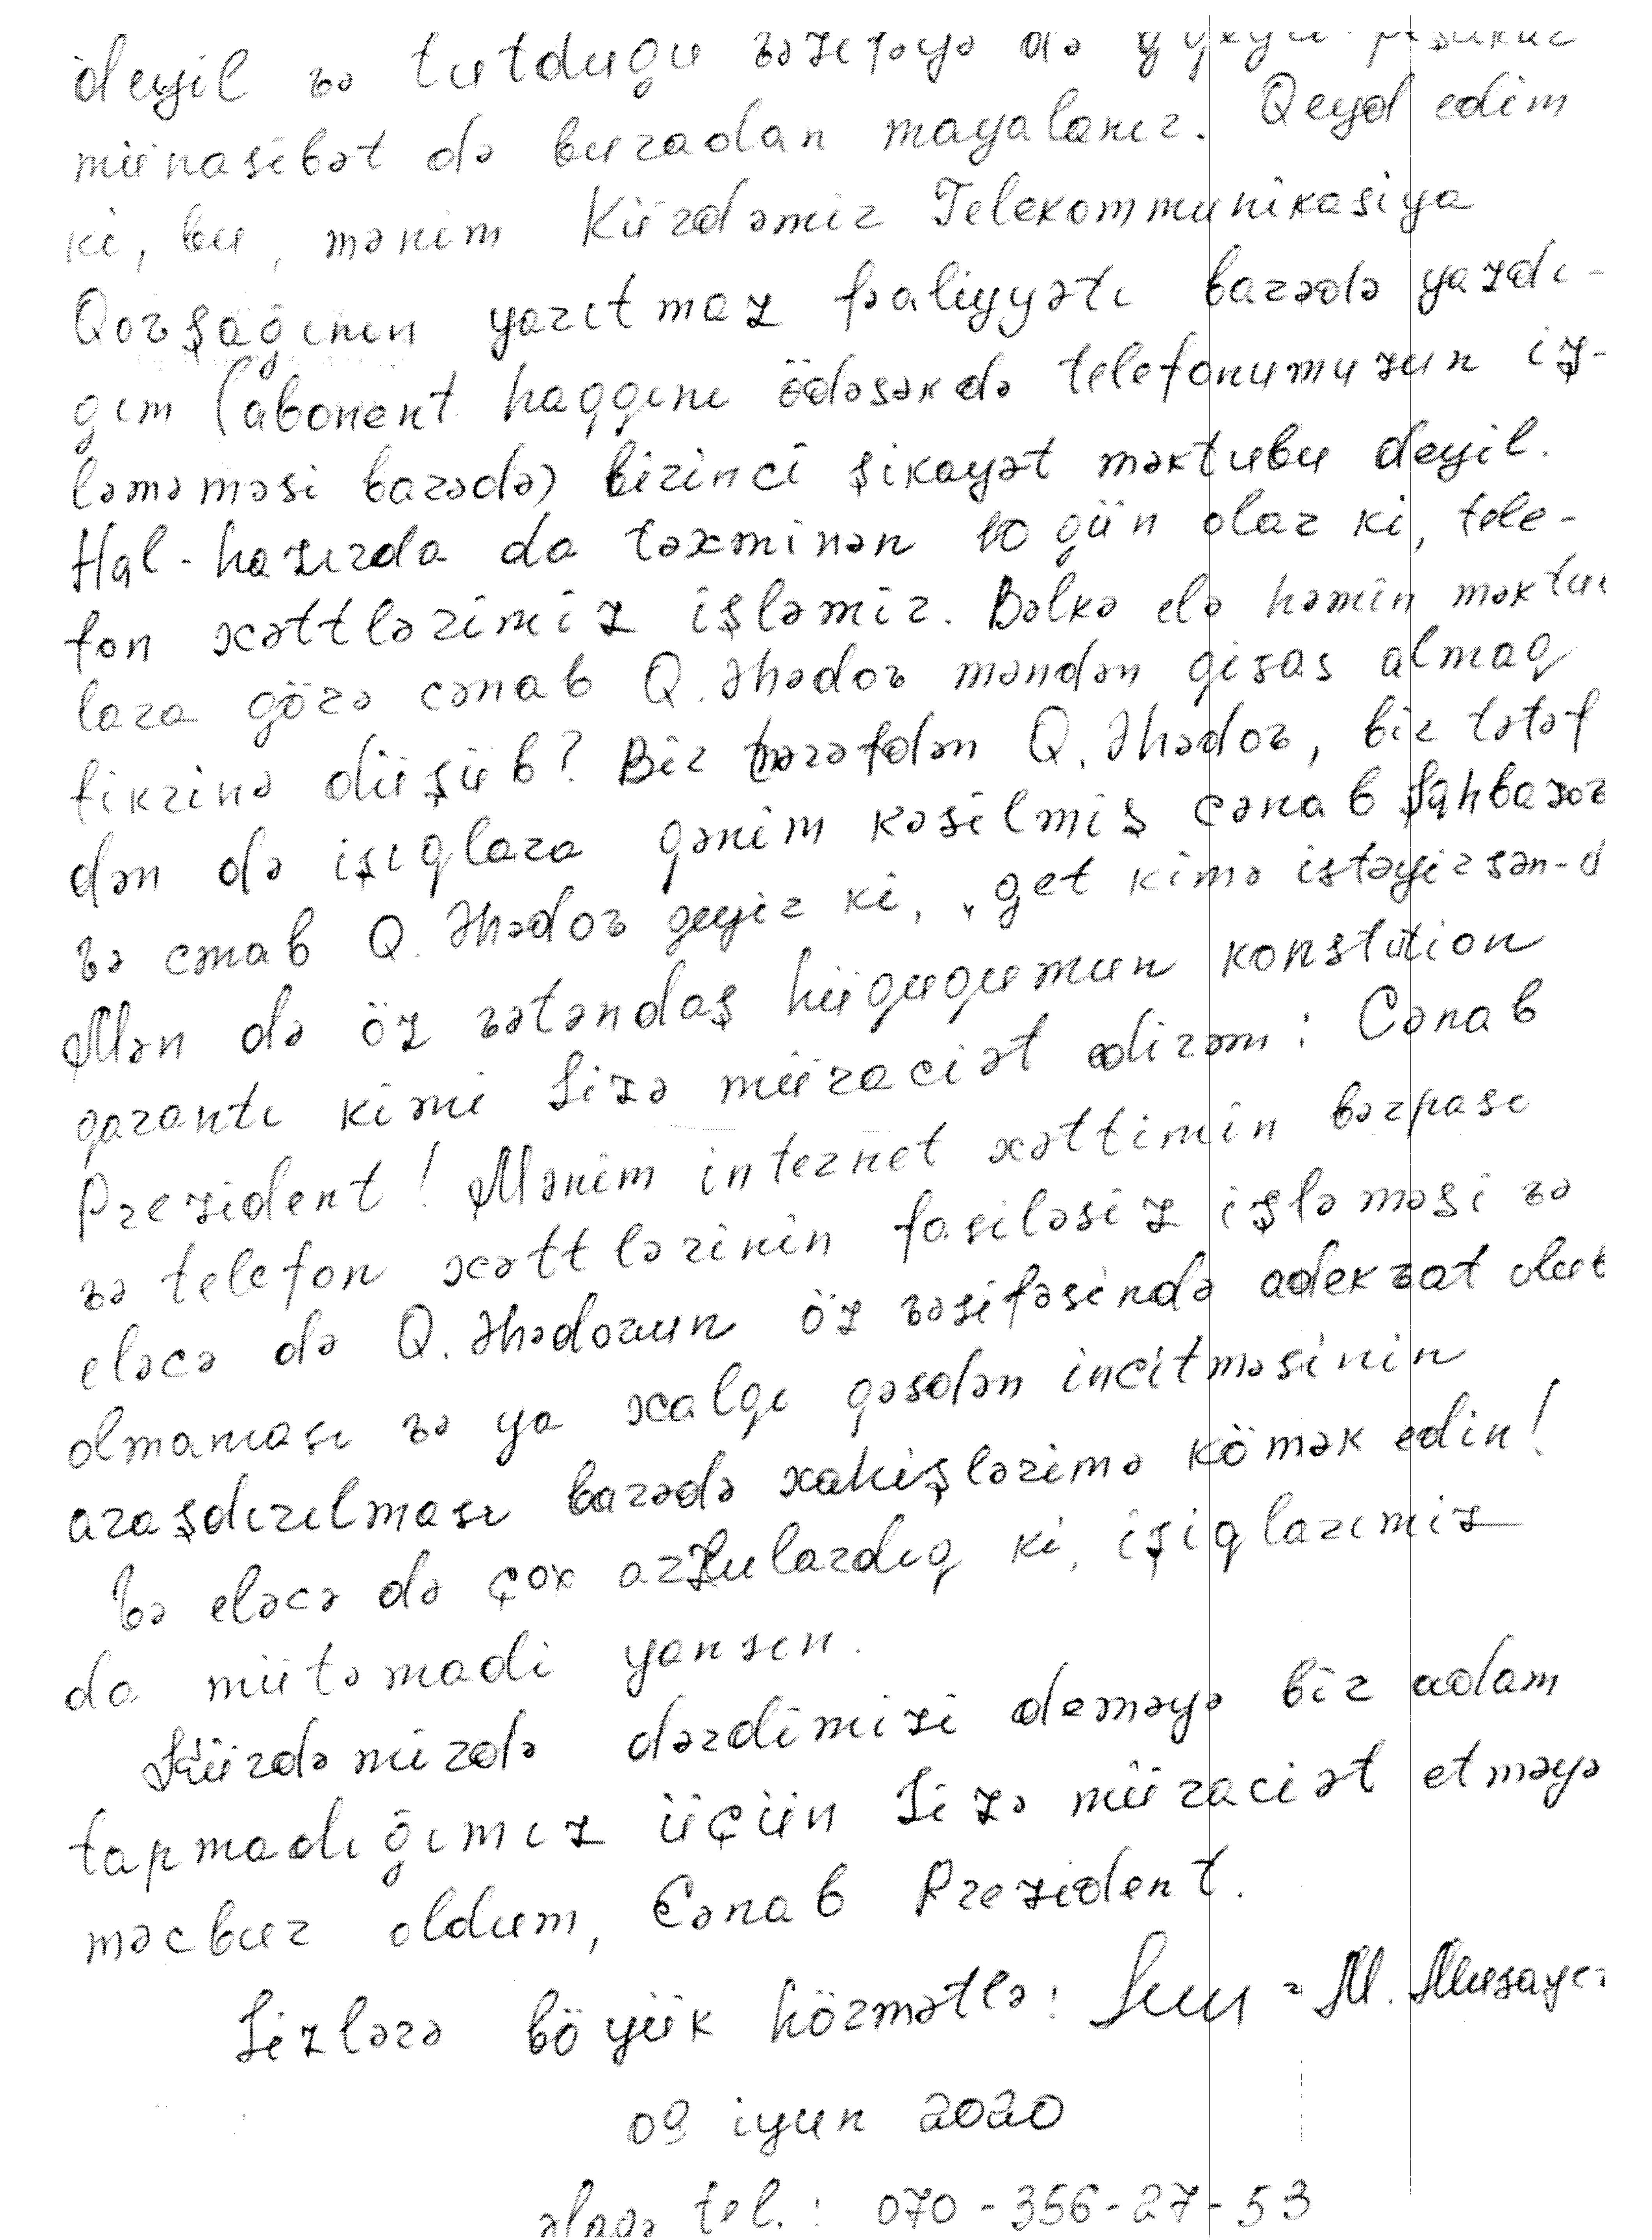 deyil və tutduğu vəzifəyə də
münasibət də buradan mayalanır. Qeyd edim
ki, bu, mənim Kürdəmir Telekommunikasiya
Qovşağının yarıtmaz fəaliyyəti barədə yazdı-
ğım (abonent haqqını ödəsəkdə telefonumuzun iş-
ləməməsi barədə) birinci şikayət məktubu deyil.
Hal-hazırda da təxminən 10 gün olar ki, tele-
fon xəttlərimiz işləmir. Bəlkə elə həmin məktu
lara görə cənab Q. Əhədov məndən qisas almaq
fikrinə düşüb? Bir tərəfdən Q. Əhədov, bir tətəf
dən də işıqlara qənim kəsilmiş cənab Şahbazov
və cənab Q. Əhədov deyir ki, "get kimə istəyirsən-d
Mən də öz vətəndaş hüququmun konstution
qarantı kimi Sizə müraciət edirəm: Cənab
Prezident! Mənim internet xəttimin bərpası
və telefon xəttlərinin fasiləsiz işləməsi və
eləcə də Q. Əhədovun öz vəsifəsində adekvat olub
olmaması və ya xalqı qəsdən incitməsinin
araşdırılması barədə xahişlərimə kömək edin!
Və eləcə də çox arzulardıq ki, işiqlarımız
da mütəmadi yansın.
Kürdəmirdə dərdimizi deməyə bir adam
tapmadığımız üçün Sizə müraciət etməyə
məcbur oldum, Cənab Prezident.
Sizlərə böyük hörmətlə: M. Musayev
09 iyun 2020
əlaqə tel.: 070-356-27-53